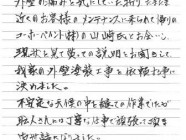 外壁の痛みを気にしていた折りたまたま
近くのお客様のメンテナンスに来られて帰りの
ユーホーペイント(株)の山崎氏とお会いし
現状を見て貰っての説明をお聞きして
我家の外壁塗装工事を依頼する事に
決めました。
不安定な天候の中を縫っての作業でしたが
職人さんには丁寧な仕事で頑張って頂き